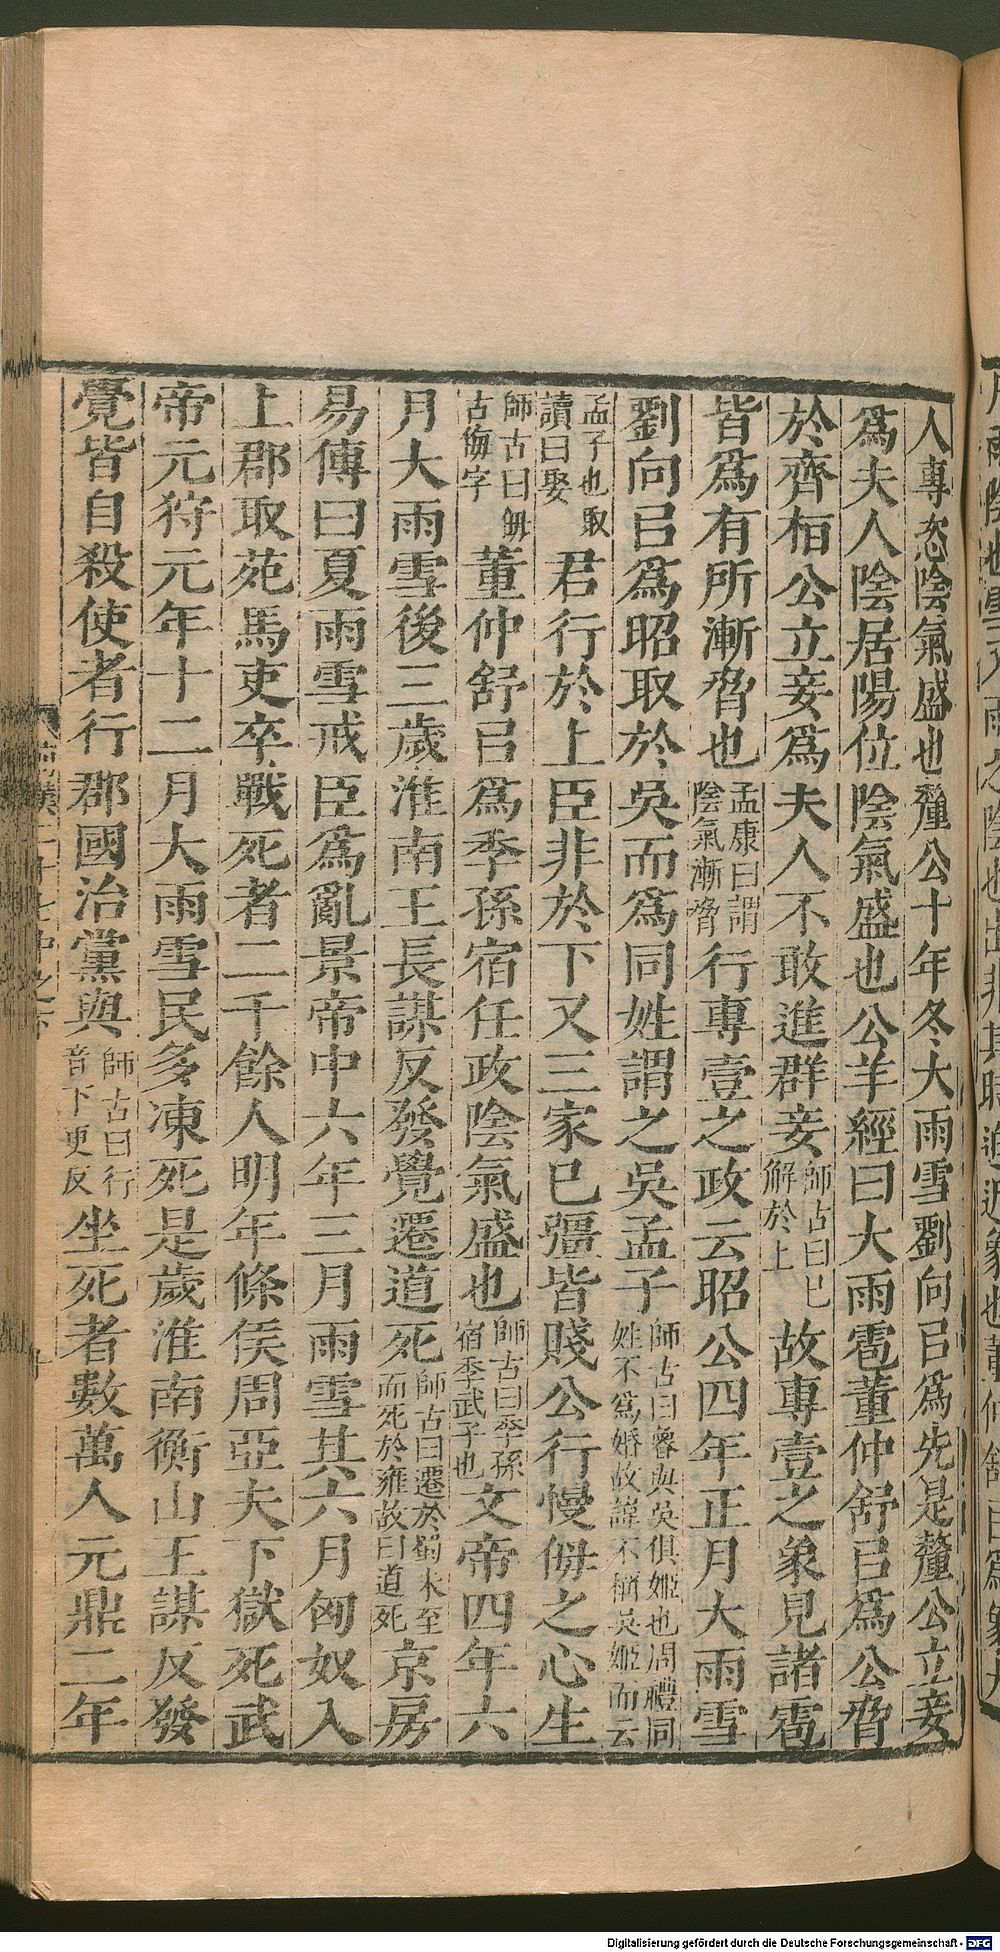 人專恣陰氣盛也釐公十年冬大雨雪劉向㠯爲先是釐公立妾
爲夫人陰居陽位陰氣盛也公羊經曰大雨雹董仲舒㠯爲公脅
於齊桓公立妾爲夫人不敢進群妾師古曰已解於上故專壹之象見諸雹
皆爲有所漸脅也孟康曰謂陰氣漸脅行專壹之政云昭公四年正月大雨雪
劉向㠯爲昭取於吳而爲同姓謂之吳孟子師古曰魯與吳俱姬也周禮同姓不爲婚故諱不稱吳姬而云
孟子也取讀曰娶君行於上臣非於下又三家已彊皆賤公行慢侮之心生
師古曰㑄古侮字董仲舒㠯爲季孫宿任政陰氣盛也師古曰季孫宿季武子也文帝四年六
月大雨雪後三歲淮南王長謀反發覺遷道死師古曰遷於蜀未至而死於雍故曰道死京房
易傳曰夏雨雪戒臣爲亂景帝中六年三月雨雪其六月匈奴入
上郡取苑馬吏卒戰死者二千餘人明年條侯周亞夫下獄死武
帝元狩元年十二月大雨雪民多凍死是歲淮南衡山王謀反發
覺皆自殺使者行郡國治黨與師古曰行音下更反坐死者數萬人元鼎二年
Digitalisierung gefördert durch die Deutsche Forschungsgemeinschaft - DFG